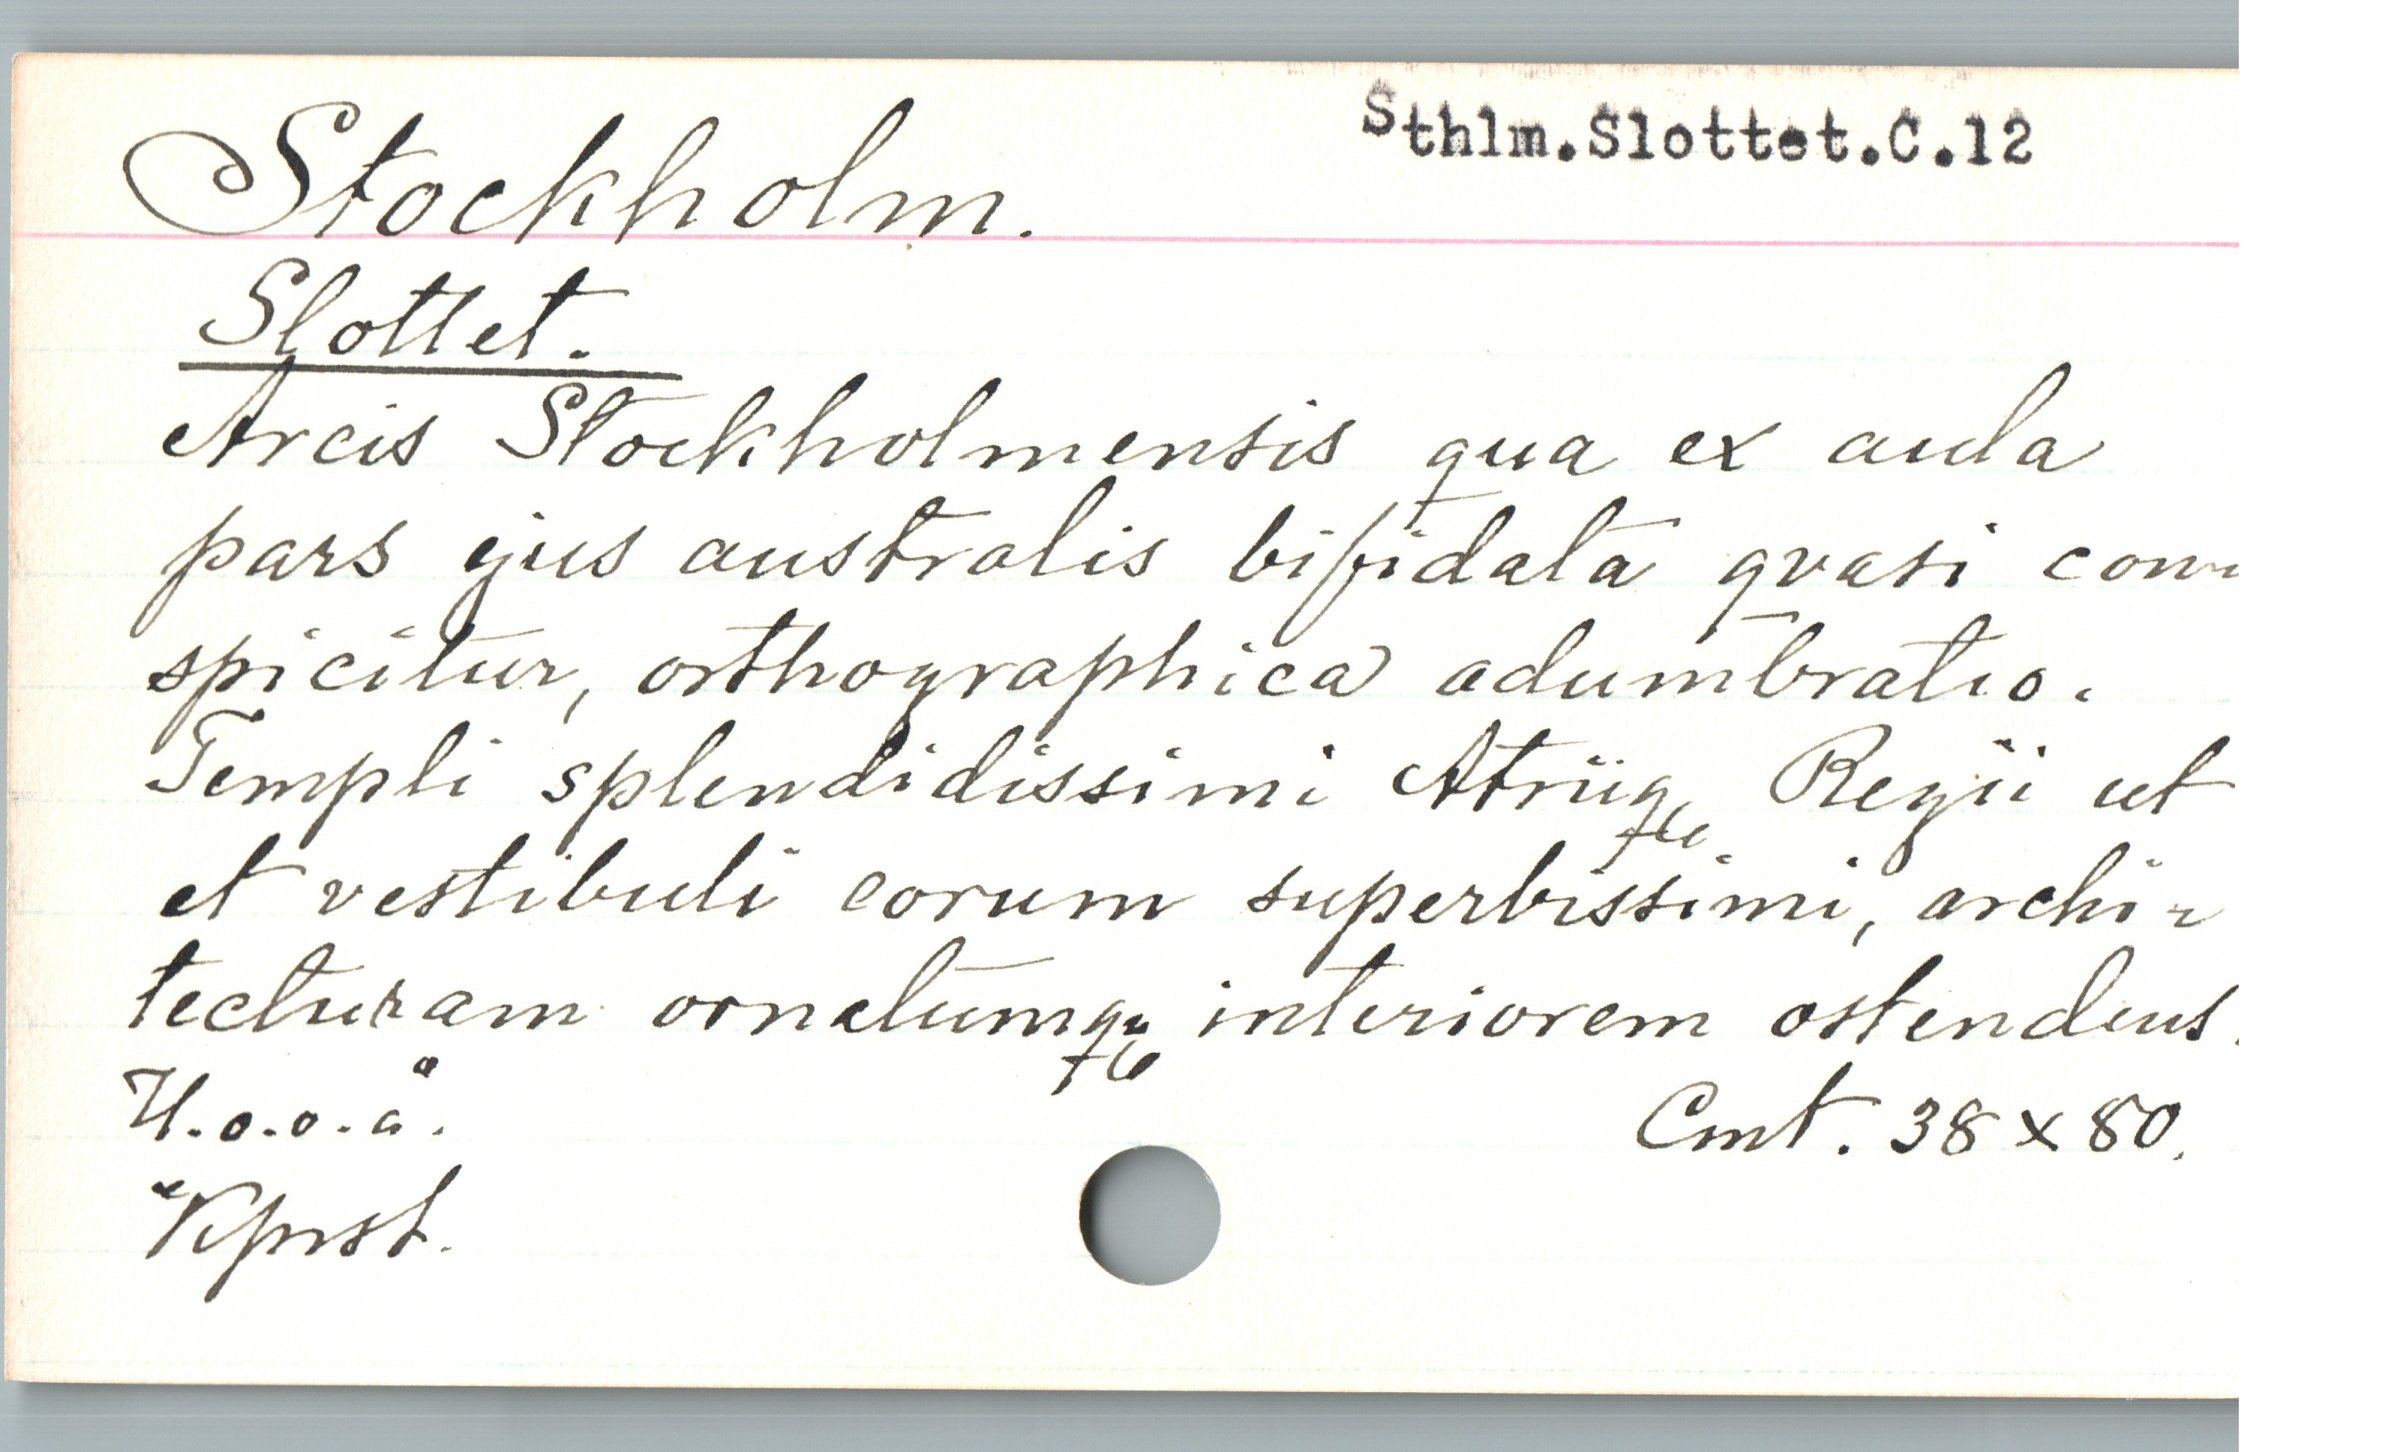 Sthlm.Slottet.C.12
Stockholm.
Slottet.
Arcis Stockholmensis qua ex aula
pars ejus australis bifidata qvasi con-
spicitur, orthographica adumbratio.
Templi splendidissimi Atriiq, Regii ut
et vestibuli eorum superbissimi, archi-
tecturam ornatumq, interiorem ostendens.
H.o.o.å.
Cmt. 38 x 80.
Kprst.